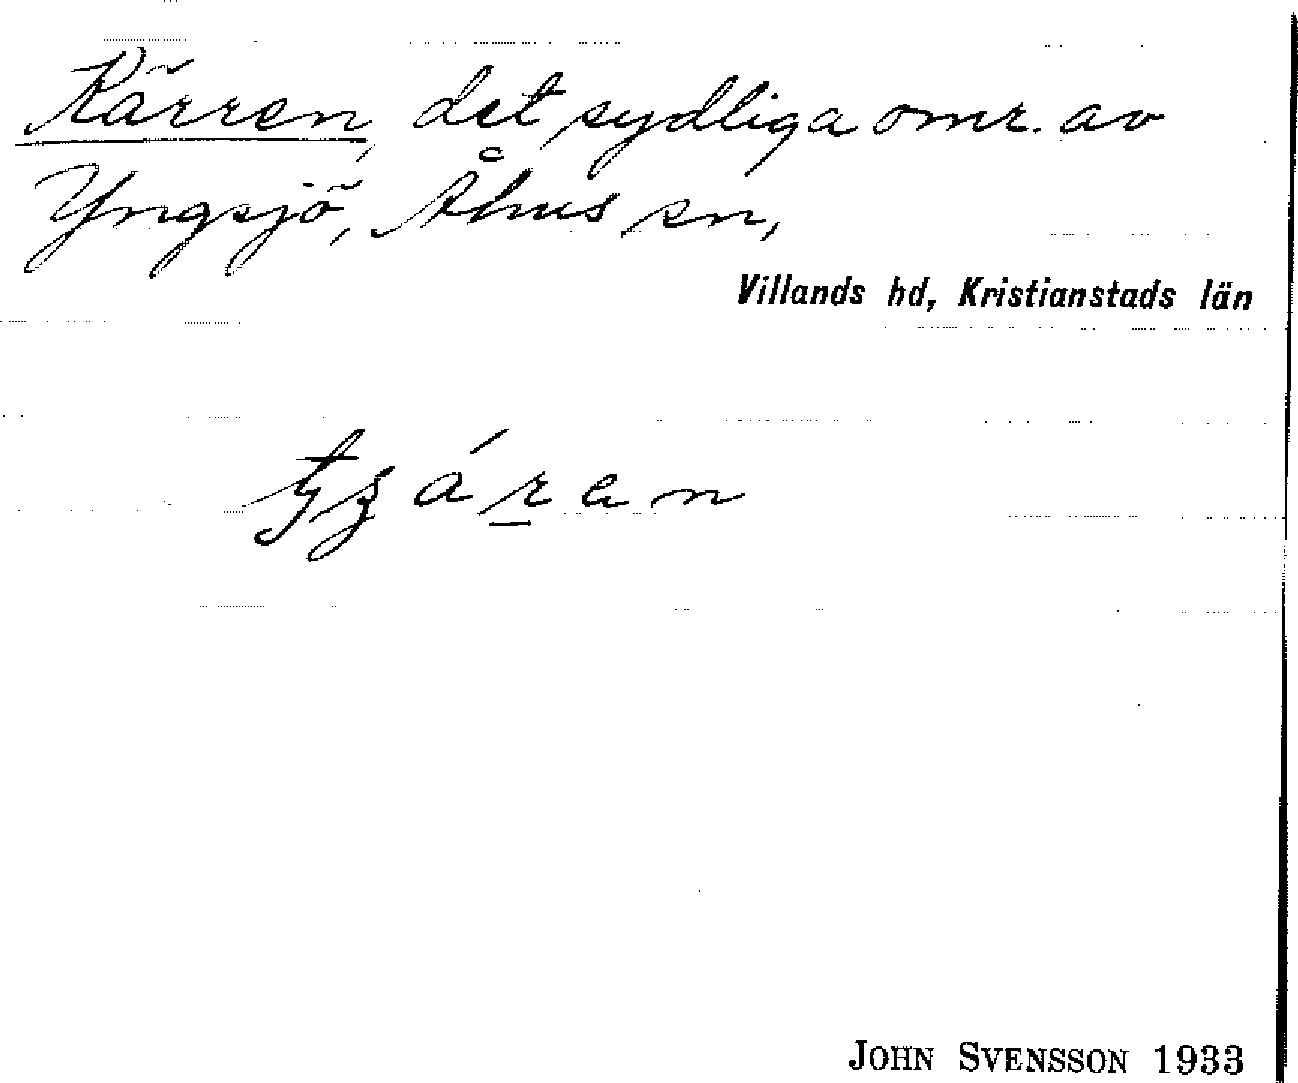 Kärren, det sydliga omr. av
Yngsjö, Åhus sn,
Villands hd, Kristianstads län
JOHN SVENSSON 1933